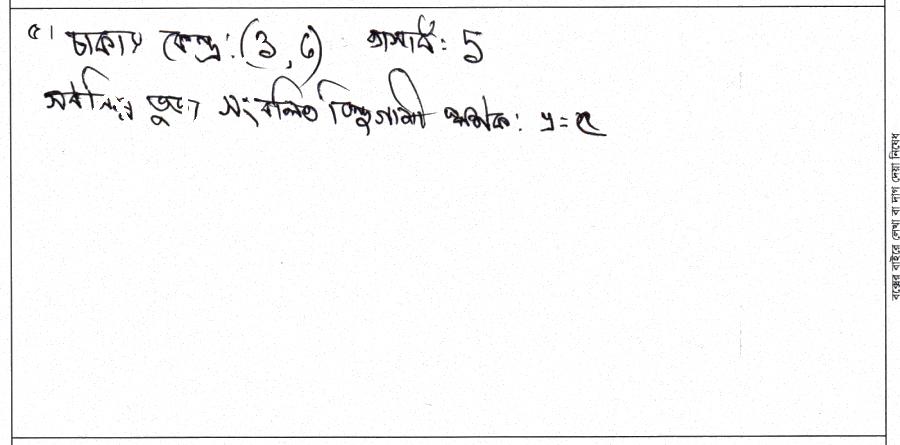 ৫। চাকার কেন্দ্র: (3, 6) ব্যাসার্ধ: 5
সর্বনিম্ন ভুজ সংবলিত বিন্দুগামী স্পর্শক:
বক্সের বাইরে লেখা বা দাগ দেয়া নিষেধ